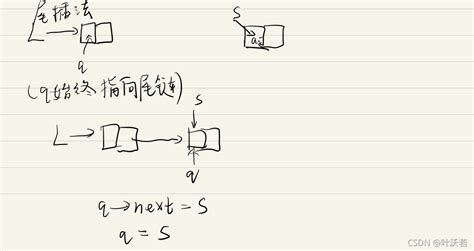 尾插法
S
L
ai
q
(q始终指向尾链)
S
L
q
q→next = S
q = S
CSDN @叶沃若